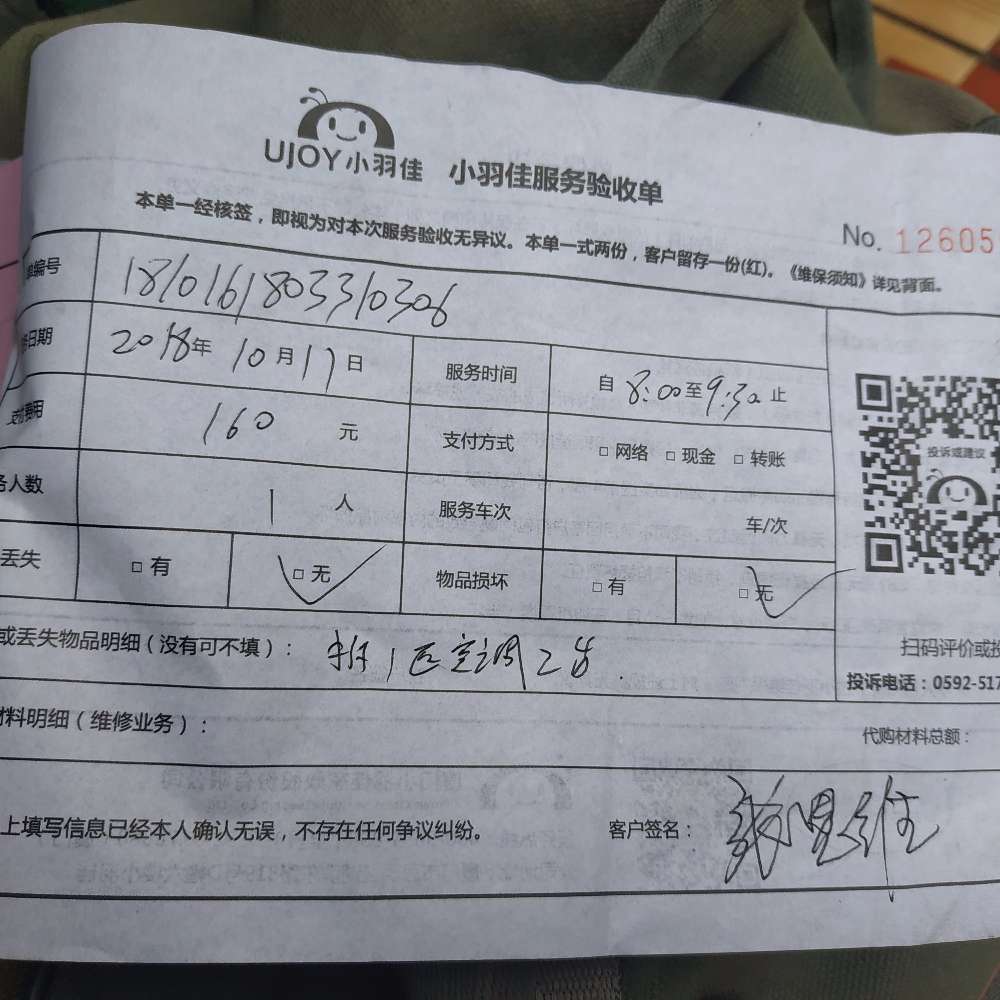 UJOY小羽佳 小羽佳服务验收单
本单一经核签，即视为对本次服务验收无异议。本单一式两份，客户留存一份(红)。《维保须知》详见背面。
No. 12605
编号 1810161803310306
日期 2018年 10月17日 服务时间 自 8:00至9:30止
支付费用 160 元 支付方式 □ 网络 □ 现金 □ 转账
务人数 1 人 服务车次 车/次
丢失 □ 有 □ 无 物品损坏 □ 有 □ 无
投诉或建议
扫码评价或投
投诉电话：0592-517
或丢失物品明细（没有可不填）： 1匹空调2台
材料明细（维修业务）： 代购材料总额：
上填写信息已经本人确认无误，不存在任何争议纠纷。 客户签名：